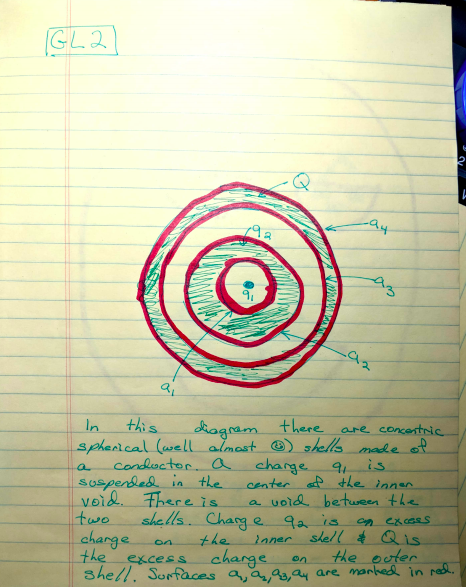 GL2
Q
a4
q2
a3
q1
a2
a1
In this diagram there are concentric
spherical (well almost ☺) shells made of
a conductor. A charge q1 is
suspended in the center of the inner
void. There is a void between the
two shells. Charge q2 is an excess
charge on the inner shell & Q is
the excess charge on the outer
shell. Surfaces a1, a2, a3, a4 are marked in red.